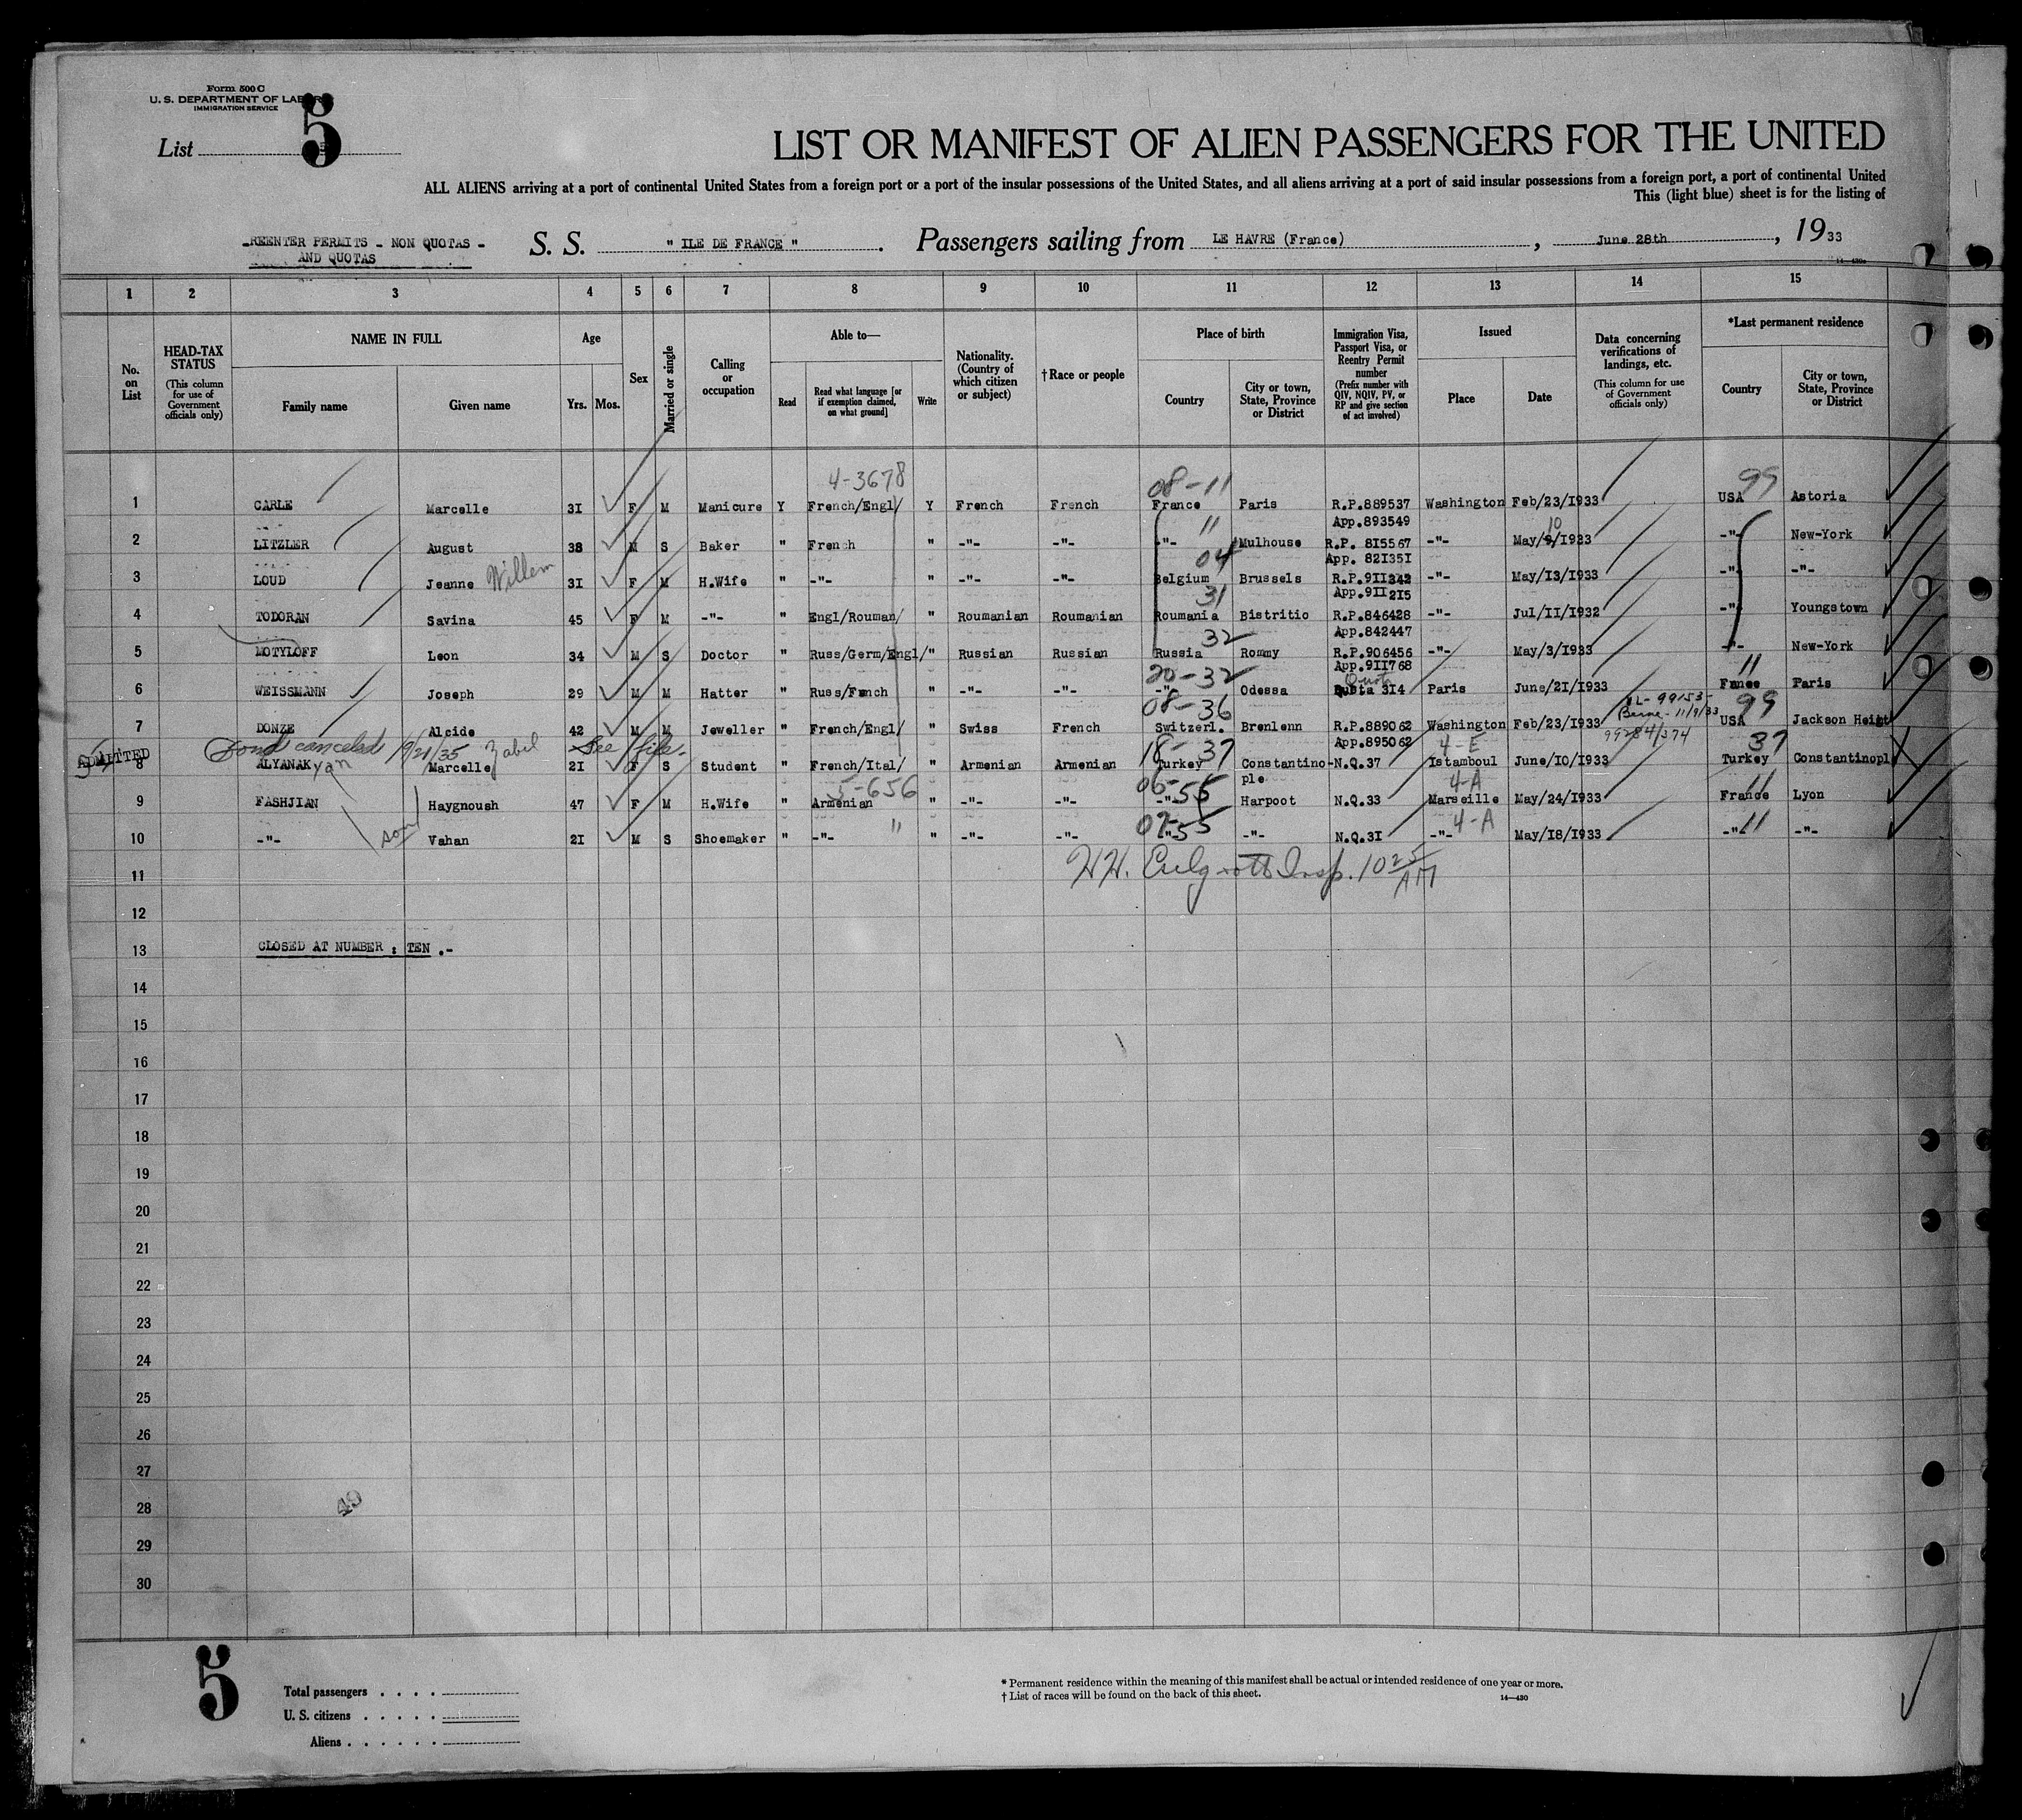 Form 500 C
U. S. DEPARTMENT OF LABOR
IMMIGRATION SERVICE
List 5
LIST OR MANIFEST OF ALIEN PASSENGERS FOR THE UNITED
ALL ALIENS arriving at a port of continental United States from a foreign port or a port of the insular possessions of the United States, and all aliens arriving at a port of said insular possessions from a foreign port, a port of continental United
This (light blue) sheet is for the listing of
-REENTER PERMITS - NON QUOTAS -
AND QUOTAS
S. S. " ILE DE FRANCE ". Passengers sailing from LE HAVRE (France), June 28th, 1933
1 2 3 4 5 6 7 8 9 10 11 12 13 14 15
No. on List
HEAD-TAX STATUS (This column for use of Government officials only)
NAME IN FULL
Family name
Given name
Age
Yrs. Mos.
Sex
Married or single
Calling or occupation
Able to—
Read
Read what language [or if exemption claimed, on what ground]
Write
Nationality. (Country of which citizen or subject)
† Race or people
Place of birth
Country
City or town, State, Province or District
Immigration Visa, Passport Visa, or Reentry Permit number (Prefix number with QIV, NQIV, PV, or RP and give section of act involved)
Issued
Place
Date
Data concerning verifications of landings, etc. (This column for use of Government officials only)
*Last permanent residence
Country
City or town, State, Province or District
4-3678 08-11 99
1 CARLE Marcelle 31 F M Manicure Y French/Engl/ Y French French France Paris R.P.889537 Washington Feb/23/1933 USA Astoria
App.893549
11 10
2 LITZLER August 38 M S Baker " French " -"- -"- -"- Mulhouse R.P. 815567 -"- May/ /1933 -"- New-York
App. 821351
04
3 LOUD Jeanne Willem 31 F M H.Wife " -"- " -"- -"- Belgium Brussels R.P.911342 -"- May/13/1933 -"- -"-
App.911215
31
4 TODORAN Savina 45 F M -"- " Engl/Rouman/ " Roumanian Roumanian Roumania Bistritio R.P.846428 -"- Jul/11/1932 -"- Youngstown
App.842447
32
5 MOTYLOFF Leon 34 M S Doctor " Russ/Germ/Engl/ " Russian Russian Russia Rommy R.P.906456 -"- May/3/1933 -"- New-York
App.911768
20-32 Quota 11
6 WEISSMANN Joseph 29 M M Hatter " Russ/Fench " -"- -"- -"- Odessa 314 Paris June/21/1933 Fance Paris
08-36 99153- Berne- 11/9/33 99
7 DONZE Alcide 42 M M Jeweller " French/Engl/ " Swiss French Switzerl. Brenlenn R.P.889062 Washington Feb/23/1933 USA Jackson Heigt
App.895062
99284/374
Bond canceled 9/21/35 Zabel See file-
18-37 4-E 37
ADMITTED 8 ALYANAK yan Marcelle 21 F S Student " French/Ital/ " Armenian Armenian Turkey Constantino-ple N.Q.37 Istamboul June/10/1933 Turkey Constantinopl
5-656 06-55 4-A 11
9 FASHJIAN Haygnoush 47 F M H.Wife " Armenian " -"- -"- -"- Harpoot N.Q.33 Marseille May/24/1933 France Lyon
" 07-55 4-A 11
10 -"- son Vahan 21 M S Shoemaker " -"- " -"- -"- -"- -"- N.Q.31 -"- May/18/1933 -"- -"-
11
Insp. 10 25 AM
12
13 CLOSED AT NUMBER : TEN .-
14
15
16
17
18
19
20
21
22
23
24
25
26
27
28
49
29
30
5
Total passengers . . . .
U. S. citizens . . . . .
Aliens . . . . . .
* Permanent residence within the meaning of this manifest shall be actual or intended residence of one year or more.
† List of races will be found on the back of this sheet.
14—430